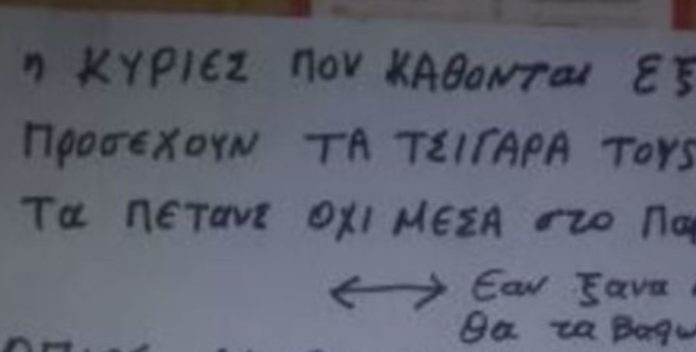 η ΚΥΡΙΕΣ ΠΟΥ ΚΑΘΟΝΤαι
ΠροσεΧΟΥΝ ΤΑ ΤΣΙΓΑΡΑ ΤΟΥΣ
Τα ΠΕΤανε ΟΧΙ ΜΕΣΑ στο
↔ Εαν ξανα
Θα τα